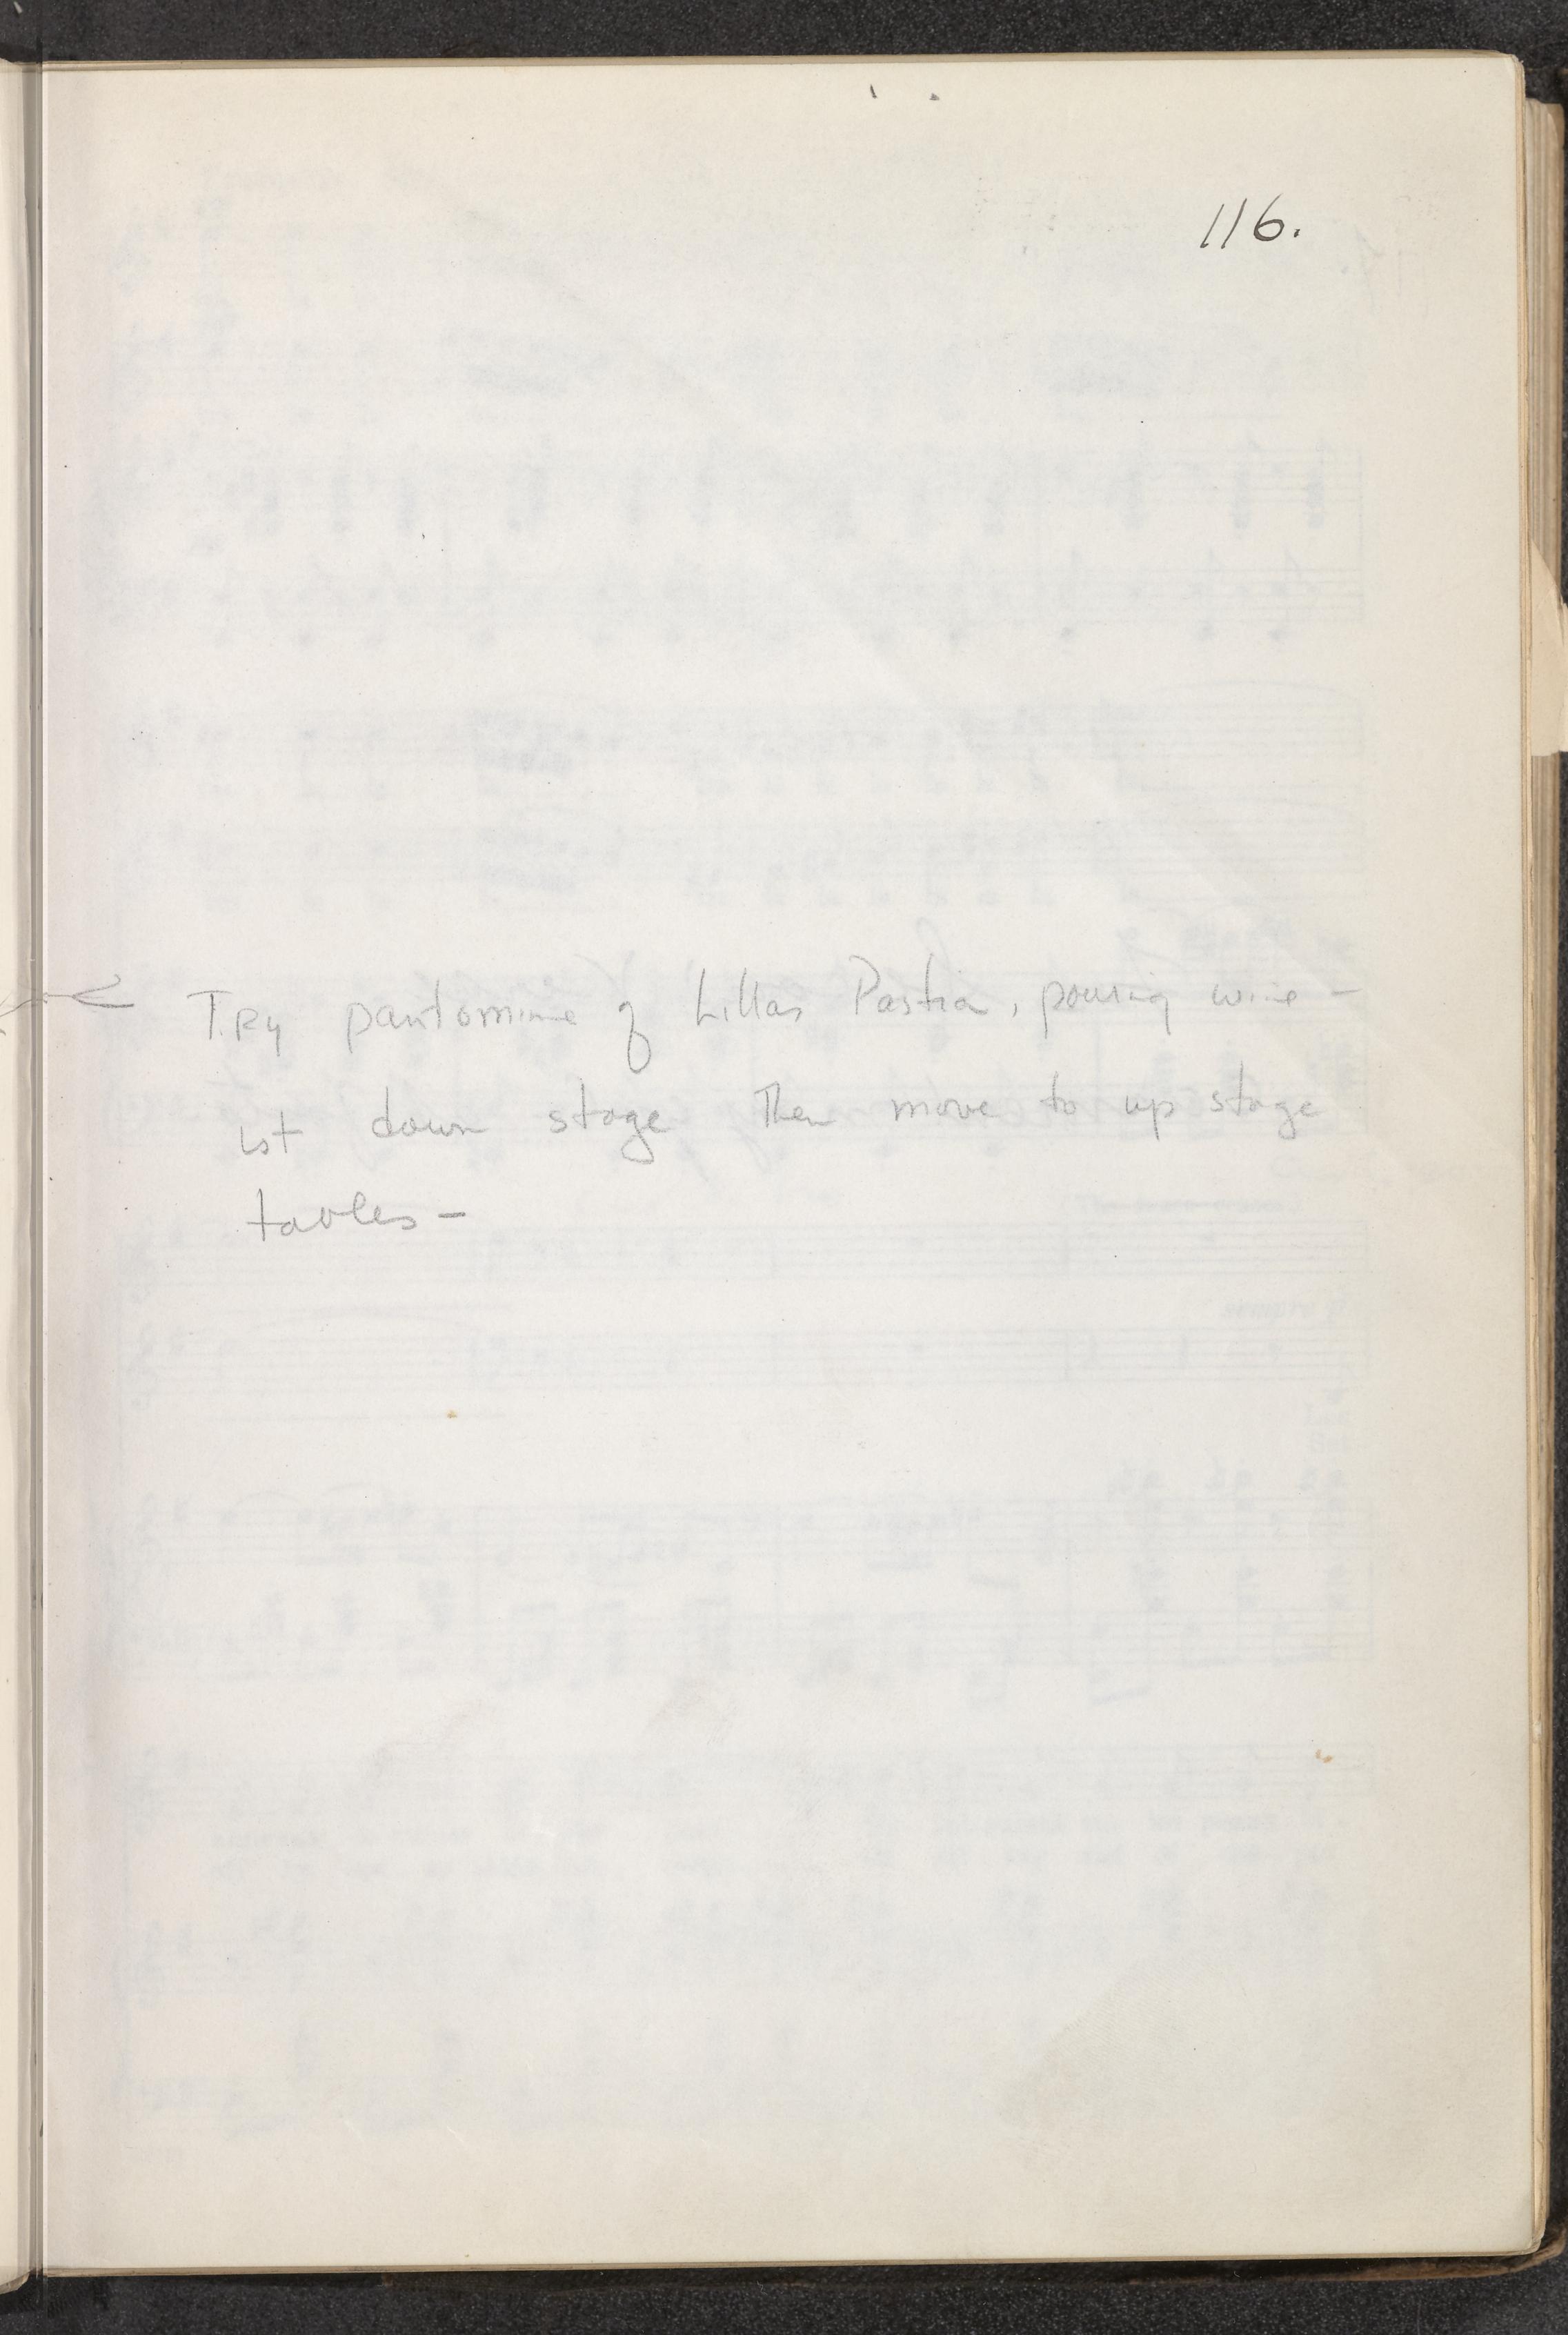 116.
Try pantomime of Lillas Pastia, pouring wine -
1st down stage Then move to up stage
tables -